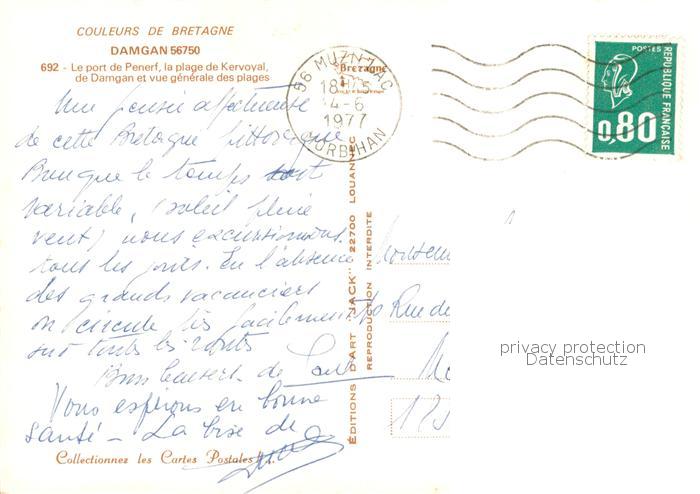 COULEURS DE BRETAGNE
DAMGAN 56750
692 - Le port de Penerf, la plage de Kervoyal,
de Damgan et vue générale des plages
Une pensée affectueuse
de cette Bretagne pittoresque
Bien que le temps soit
variable, (soleil pluie
vent) nous excursionnons
tous les jours. En l'absence
des grands vacanciers
on circule très facilement
sur toutes les routes
Bons baisers de
Vous espérons en bonne
santé - La bise de
Collectionnez les Cartes Postales
EDITIONS D'ART "JACK" 22700 LOUANNEC
REPRODUCTION INTERDITE
Bretagne
56 MUZILLAC
18H15
4-6
1977
MORBIHAN
POSTES
REPUBLIQUE FRANÇAISE
0,80
Monsieur
Rue de
privacy protection
Datenschutz